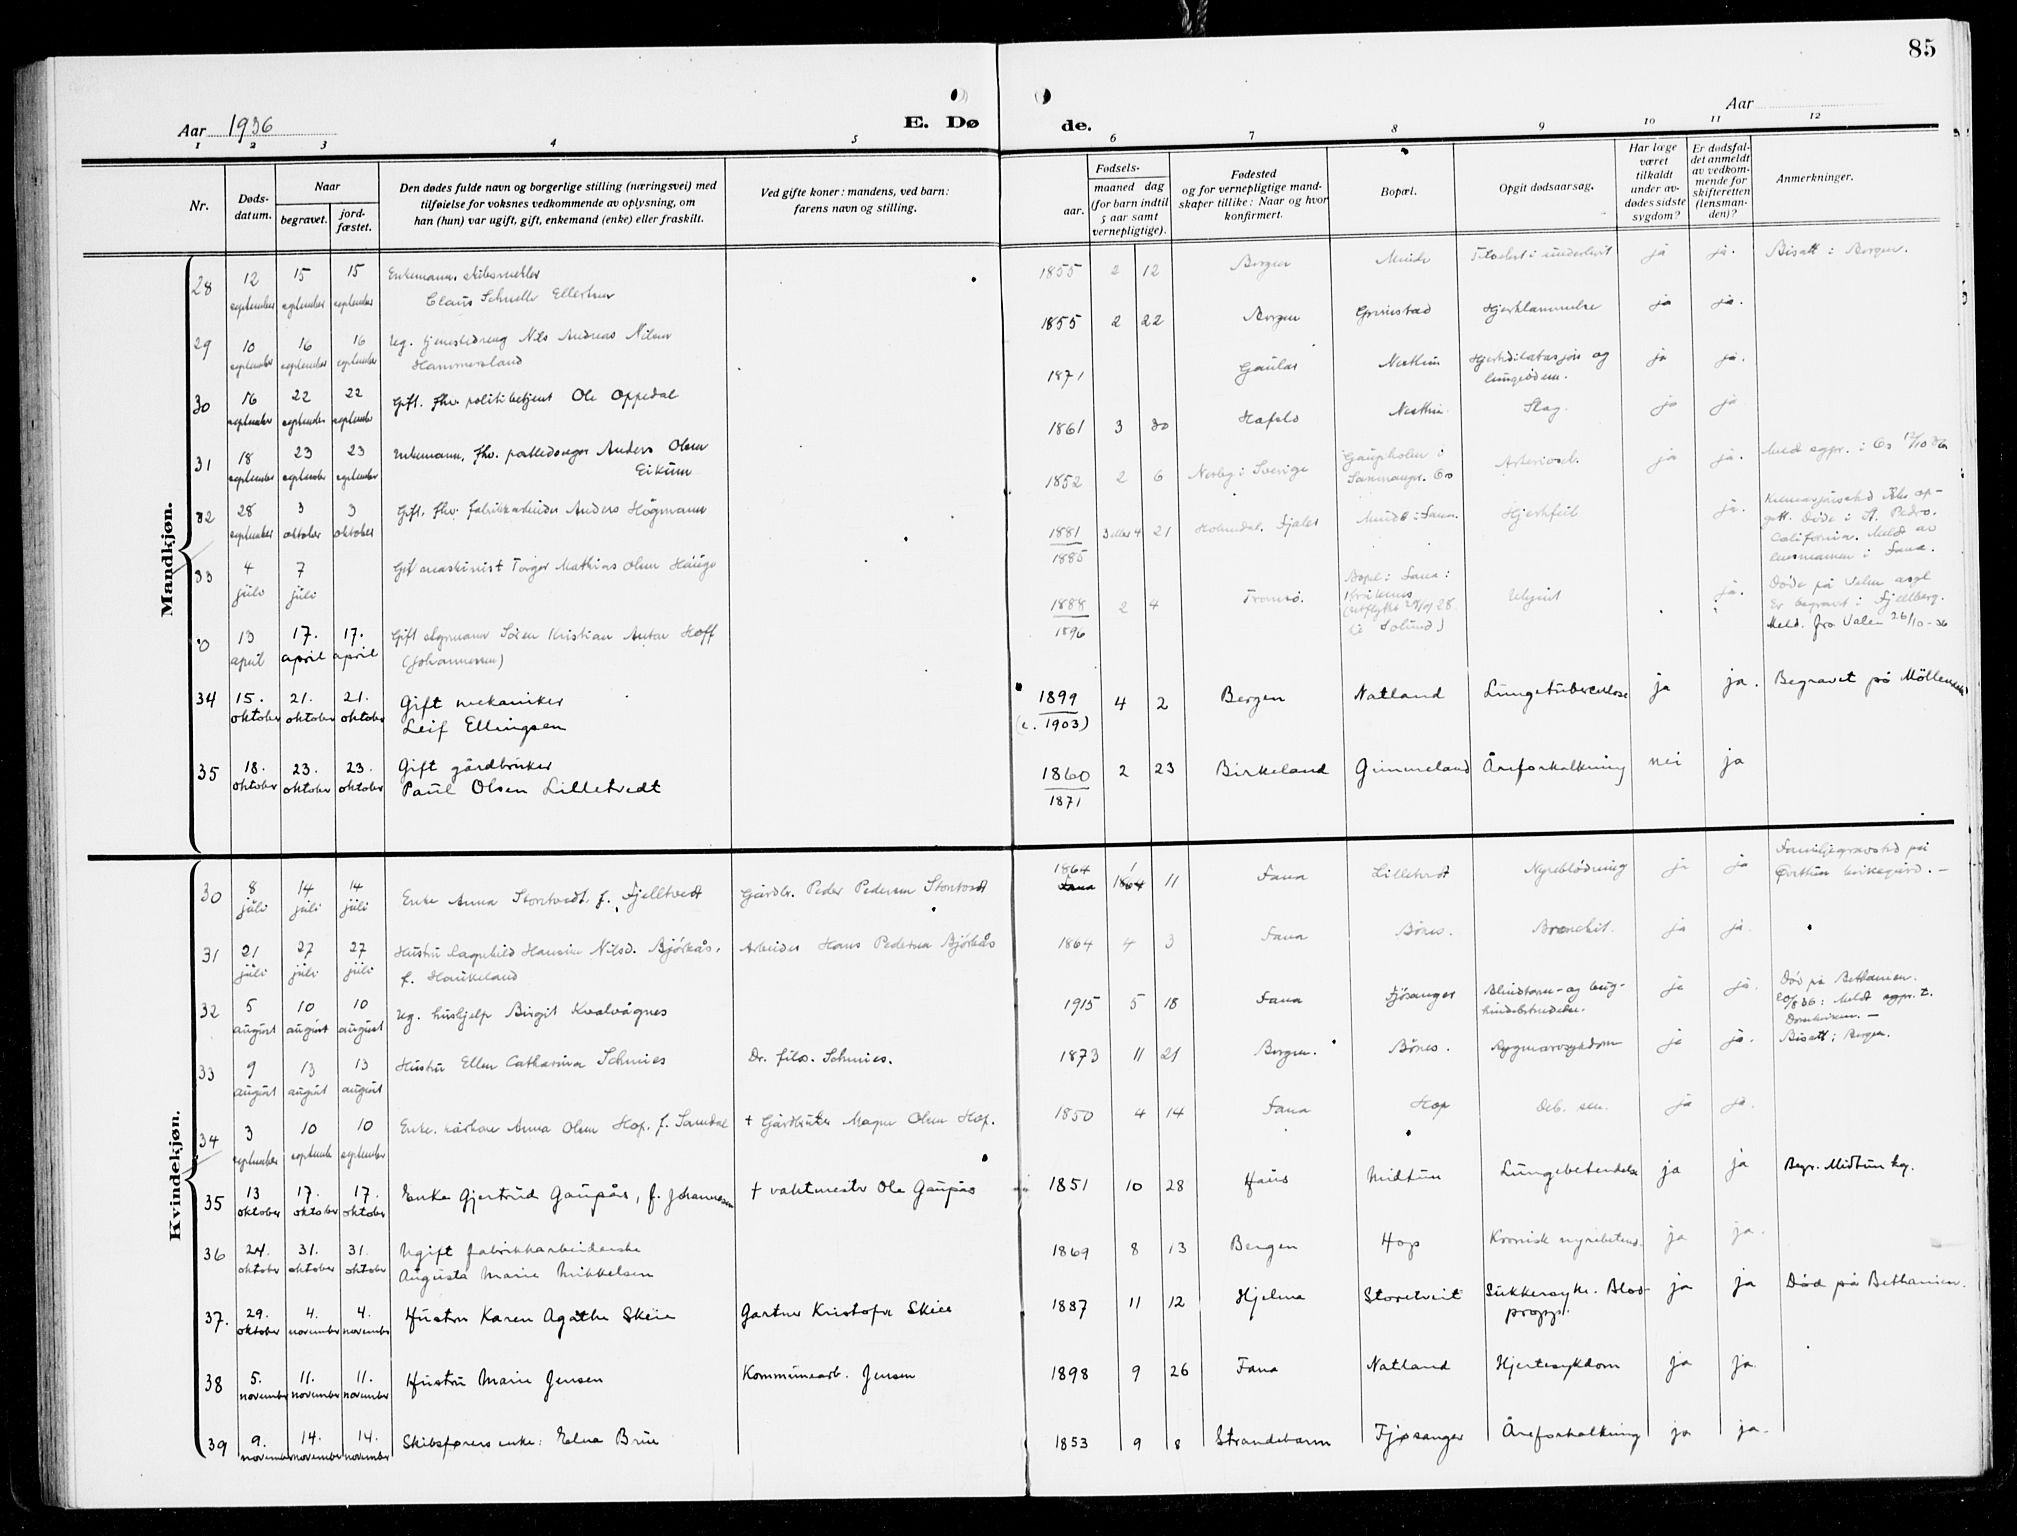 85
Aar 1936
E. Dø
de.
Aar
1 2 3 4 5 6 7 8 9 10 11 12
Nr.
Døds-
datum.
Naar
begravet.
jord-
fæstet.
Den dødes fulde navn og borgerlige stilling (næringsvei) med
tilføielse for voksnes vedkommende av oplysning, om
han (hun) var ugift, gift, enkemand (enke) eller fraskilt.
Ved gifte koner: mandens, ved barn:
farens navn og stilling.
Fødsels-
aar.
maaned dag
(for barn indtil
5 aar samt
vernepligtige).
Fødested
og for vernepligtige mand-
skaper tillike: Naar og hvor
konfirmert.
Bopæl.
Opgit dødsaarsag.
Har læge
været
tilkaldt
under av-
dødes sidste
sygdom?
Er dødsfal-
det anmeldt
av vedkom-
mende for
skifteretten
(lensman-
den)?
Anmerkninger.
Mandkjøn.
28 12 september 15 september 15 september Enkemann, skibsmekler
Claus Schnelle Ellertsen
1855 2 12 Bergen Minde ja ja. Bisatt i Bergen.
29 10 september 16 september 16 september Ug. tjenestedreng Nils Andreas Nilsen
Hammersland
1855 2 22 Bergen Grimstad Hjertelammelse ja ja.
30 16 september 22 september 22 september Gift. fhv. politibetjent Ole Oppedal
1871 Gaular Nesttun Hjertedilatasjon og
lungeødem. ja ja.
31 18 september 23 september 23 september Enkemann, fhv. Anders Olsen
Eikum
1861 3 30 Hafslo Nesttun Slag. ja ja
32 28 september 3 oktober 3 oktober Gift. fhv. fabrikkarbeider Anders Högmann
1852 2 6 i Sverige Gaupholm i
Samnanger. Os Arterioscl. ja ja. Meld sogpr. i Os 12/10 36
33 4 juli 7 juli Gift maskinist Torger Mathias Olsen Haugo
1881
1885 3 eller 4 21 Holmedal. Fjaler Minde i Fana. Hjertefeil ja.
gitt. Døde i St. Pedro.
California. Meldt av
lensmannen i Fana.
0 13 april 17. april 17. april Gift Søren Kristian Anton Hoff
(Johannessen)
1888
1896 2 4 Tromsö. Bopel i Fana:
(utflyttet 28
til Solund) Ukjent ja. Døde på Valen asyl
Er begravet i Fjellberg.
Meld. fra Valen 26/10-36
34 15. oktober 21. oktober 21. oktober Gift mekaniker
Leif Ellingsen
1899
(c. 1903) 4 2 Bergen Natland Lungetuberculose ja ja. Begravet på Möllendal
35 18. oktober 23. oktober 23. oktober Gift gårdbruker
Paul Olsen Lilletvedt
1860
1871 2 23 Birkeland Gimmeland Åreforkalkning nei ja
Kvindekjøn.
30 8 juli 14 juli 14 juli Enke Anna Storetvedt f. Fjelltvedt Gårdbr. Peder Pedersen Storetvedt
1864 1 11 Fana Lilletvedt Nyreblödning ja ja Familjegravsted på
Øvsttun kirkegård. –
31 21 juli 27 juli 27 juli Hustru Hansine Nilsd. Bjørkås,
f. Haukeland Arbeider Hans Pedersen Bjørkås
1864 4 3 Fana Bönes. Bronchit. ja ja.
32 5 august 10 august 10 august Ug. hushjelp Birgit Kvalvågnes
1915 5 18 Fana Fjösanger Blindtarm- og bug-
hindebetendelse. ja ja. Död på Bethanien.
20/8 36: Meldt sogpr. t.
Domkirken. –
33 9 august 13 august 13 august Hustru Ellen Catharina Schnies Dr. filos. Schnies.
1873 11 21 Bergen. Bönes. Rygmarvsykdom ja ja. Bisatt i Bergen.
34 3 september 10 september 10 september Enke. kårkone Anna Olsen Hop, f. Samdal + Gårdbruker Magne Olsen Hop.
1850 4 14 Fana Hop Deb. sen. ja ja.
35 13 oktober 17. oktober 17. oktober Enke Gjertrud Gaupås, f. Johannesen + vaktmester Ole Gaupås
1851 10 28 Haus Midtun Lungebetendelse ja ja Begr. Midtun kg.
36 24. oktober 31. oktober 31. oktober Ugift fabrikkarbeiderske
Augusta Marie Mikkelsen
1869 8 13 Bergen Hop Kronisk nyrebetend. ja ja.
37. 29. oktober 4. november 4. november Hustru Karen Agathe Skeie Gartner Kristofer Skeie
1887 11 12 Hjelme Storetveit Sukkersyke. Blod-
propp. ja ja Död på Bethanien.
38 5. november 11. november 11. november Hustru Marie Jensen Kommunearb. Jensen
1898 9 26 Fana Natland Hjertesykdom ja ja.
39 9. november 14. november 14. november Skibsførers enke: Elna Brun
1853 9 8 Strandebarm Fjøsanger Åreforkalkning ja ja.